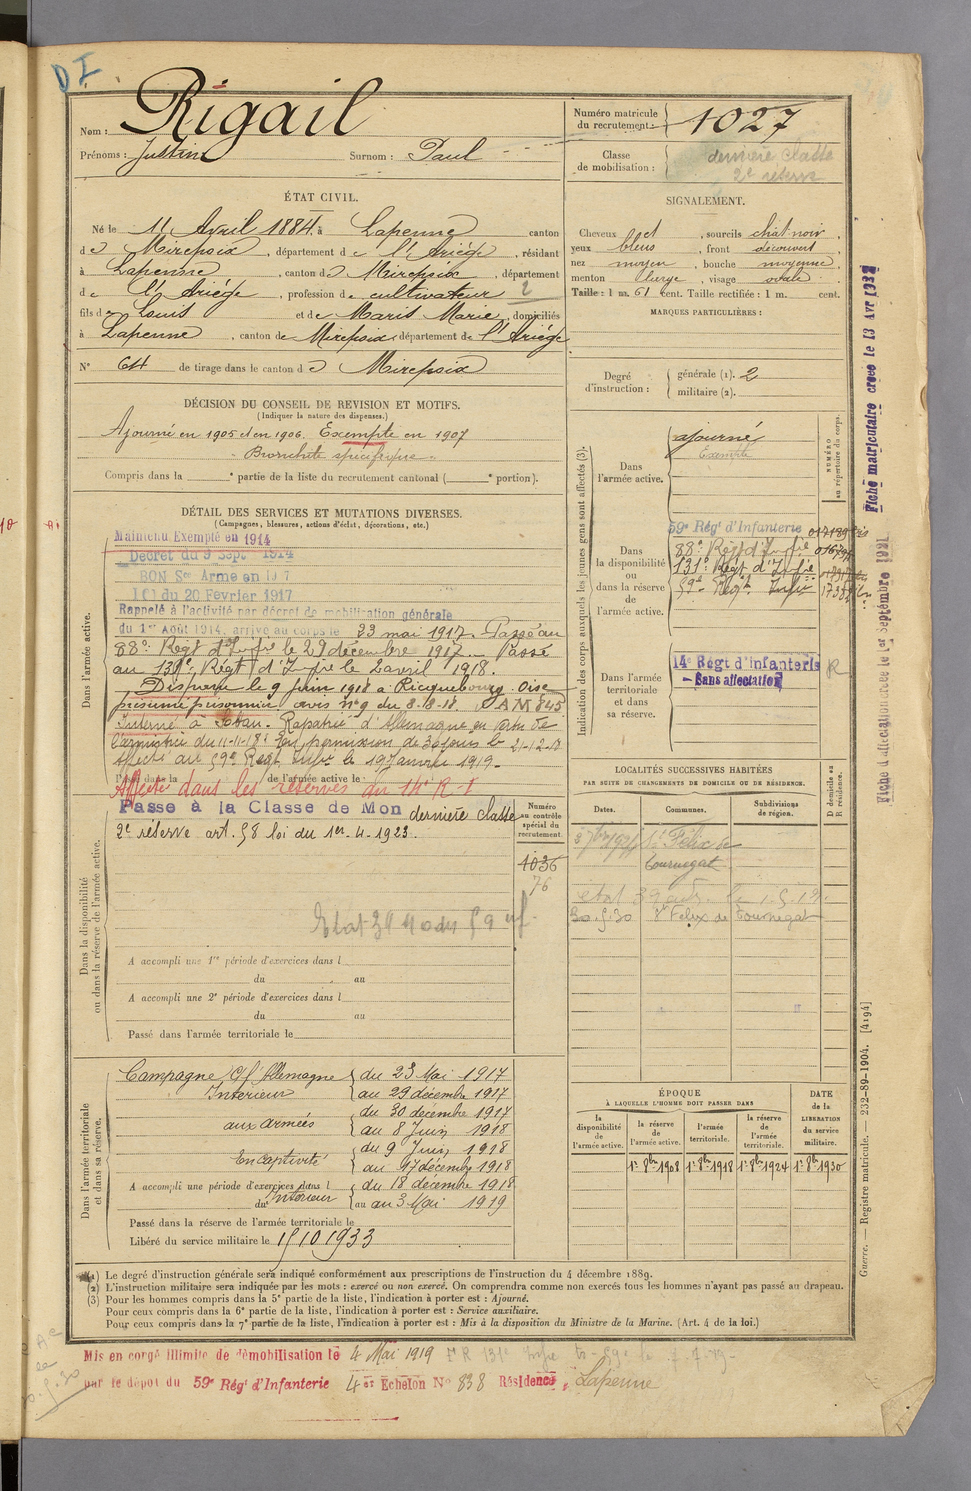 D I
Nom : Rigail
Prénoms : Justin Surnom : Paul
Numéro matricule du recrutement : 1027
Classe de mobilisation : dernière classe
2e réserve
ÉTAT CIVIL.
Né le 11 Avril 1884, à Lapenne canton
de Mirepoix, département de l'Ariège, résidant
à Lapenne, canton de Mirepoix, département
de l'Ariège, profession de cultivateur 2
fils de Louis et de Maris Marie, domiciliés
à Lapenne, canton de Mirepoix, département de l'Ariège
N° 64 de tirage dans le canton de Mirepoix
SIGNALEMENT.
Cheveux , sourcils chât noir,
yeux bleus, front découvert
nez moyen, bouche moyenne,
menton large, visage ovale
Taille : 1 m. 61 cent. Taille rectifiée : 1 m. cent.
MARQUES PARTICULIÈRES :
Degré d'instruction : générale (1). 2
militaire (2).
DÉCISION DU CONSEIL DE REVISION ET MOTIFS.
(Indiquer la nature des dispenses.)
Ajourné en 1905 et en 1906. Exempté en 1907
Bronchite spécifique
Compris dans la e partie de la liste du recrutement cantonal ( e portion).
DÉTAIL DES SERVICES ET MUTATIONS DIVERSES.
(Campagnes, blessures, actions d'éclat, décorations, etc.)
Dans l'armée active.
Maintenu Exempté en 1914
Décret du 9 Sept 1914
BON Sce Armé en 1917
Loi du 20 Février 1917
Rappelé à l'activité par décret de mobilisation générale
du 1er Août 1914, arrivé au corps le 23 mai 1917. Passé au
88e Regt d'Infrie le 29 décembre 1917. Passé
au 131e Régt d'Infrie le 2 avril 1918.
Disparu le 9 Juin 1918 à Ricquebourg. Oise
présumé prisonnier avis n° 9 du 8.18.18. AM 845
Interné à . Rapatrié d'Allemagne en vertu de
l'armistice du 11-11-18. En permission de 30 jours le 21-12-18
Affecté au 59e Regt Infie le 19 Janvier 1919.
Passé dans la de l'armée active le
Affecté dans les réserves du 14e R.I
Dans la disponibilité ou dans la réserve de l'armée active.
Passé à la Classe de Mon dernière classe
2e réserve art. 58 loi du 1er. 4. 1923.
Numéro au contrôle spécial du recrutement
1036
76
A accompli une 1re période d'exercices dans l
du au
A accompli une 2e période d'exercices dans l
du au
Passé dans l'armée territoriale le
Dans l'armée territoriale et dans sa réserve.
Campagne C/ l'Allemagne
Intérieur { du 23 Mai 1917
au 29 décembre 1917
aux armées { du 30 décembre 1917
au 8 Juin 1918
En Captivité { du 9 Juin 1918
au 17 décembre 1918
A accompli une période d'exercices dans l
Intérieur { du 18 décembre 1918
du au au 3 Mai 1919
Passé dans la réserve de l'armée territoriale le
Libéré du service militaire le 15 10 1933
Indication des corps auxquels les jeunes gens sont affectés (3).
NUMÉRO au répertoire du corps.
Dans l'armée active.
ajourné
Exempté
Dans la disponibilité ou dans la réserve de l'armée active.
59e Régt d'Infanterie
88e Regt d'Infrie
131e Regt d'Infrie
59e Regt Infie
Dans l'armée territoriale et dans sa réserve.
14e Régt d'infanterie
- Sans affectation
R
LOCALITÉS SUCCESSIVES HABITÉES
PAR SUITE DE CHANGEMENTS DE DOMICILE OU DE RÉSIDENCE.
Dates. Communes. Subdivisions de région. D domicile ou R résidence.
St Félix de
Tournegat
30.5.30 St Felix de Tournegat
ÉPOQUE
À LAQUELLE L'HOMME DOIT PASSER DANS
la disponibilité de l'armée active. la réserve de l'armée active. l'armée territoriale. la réserve de l'armée territoriale. DATE de la LIBERATION du service militaire.
1er 8bre 1908 1er 8bre 1918 1er 8bre 1924 1er 8bre 1930
(1) Le degré d'instruction générale sera indiqué conformément aux prescriptions de l'instruction du 4 décembre 1889.
(2) L'instruction militaire sera indiquée par les mots : exercé ou non exercé. On comprendra comme non exercés tous les hommes n'ayant pas passé au drapeau.
(3) Pour les hommes compris dans la 5e partie de la liste, l'indication à porter est : Ajourné.
Pour ceux compris dans la 6e partie de la liste, l'indication à porter est : Service auxiliaire.
Pour ceux compris dans la 7e partie de la liste, l'indication à porter est : Mis à la disposition du Ministre de la Marine. (Art. 4 de la loi.)
Mis en congé illimité de démobilisation le 4 Mai 1919
par le dépôt du 59e Régt d'Infanterie 4e Echelon N° 838 Résidence, Lapenne
Fiche matriculaire créée le 13 Avr 1932
Fiche d'affectation créée le 1er Septembre 1921
Guerre. — Registre matricule. — 232-89-1904. [4194]